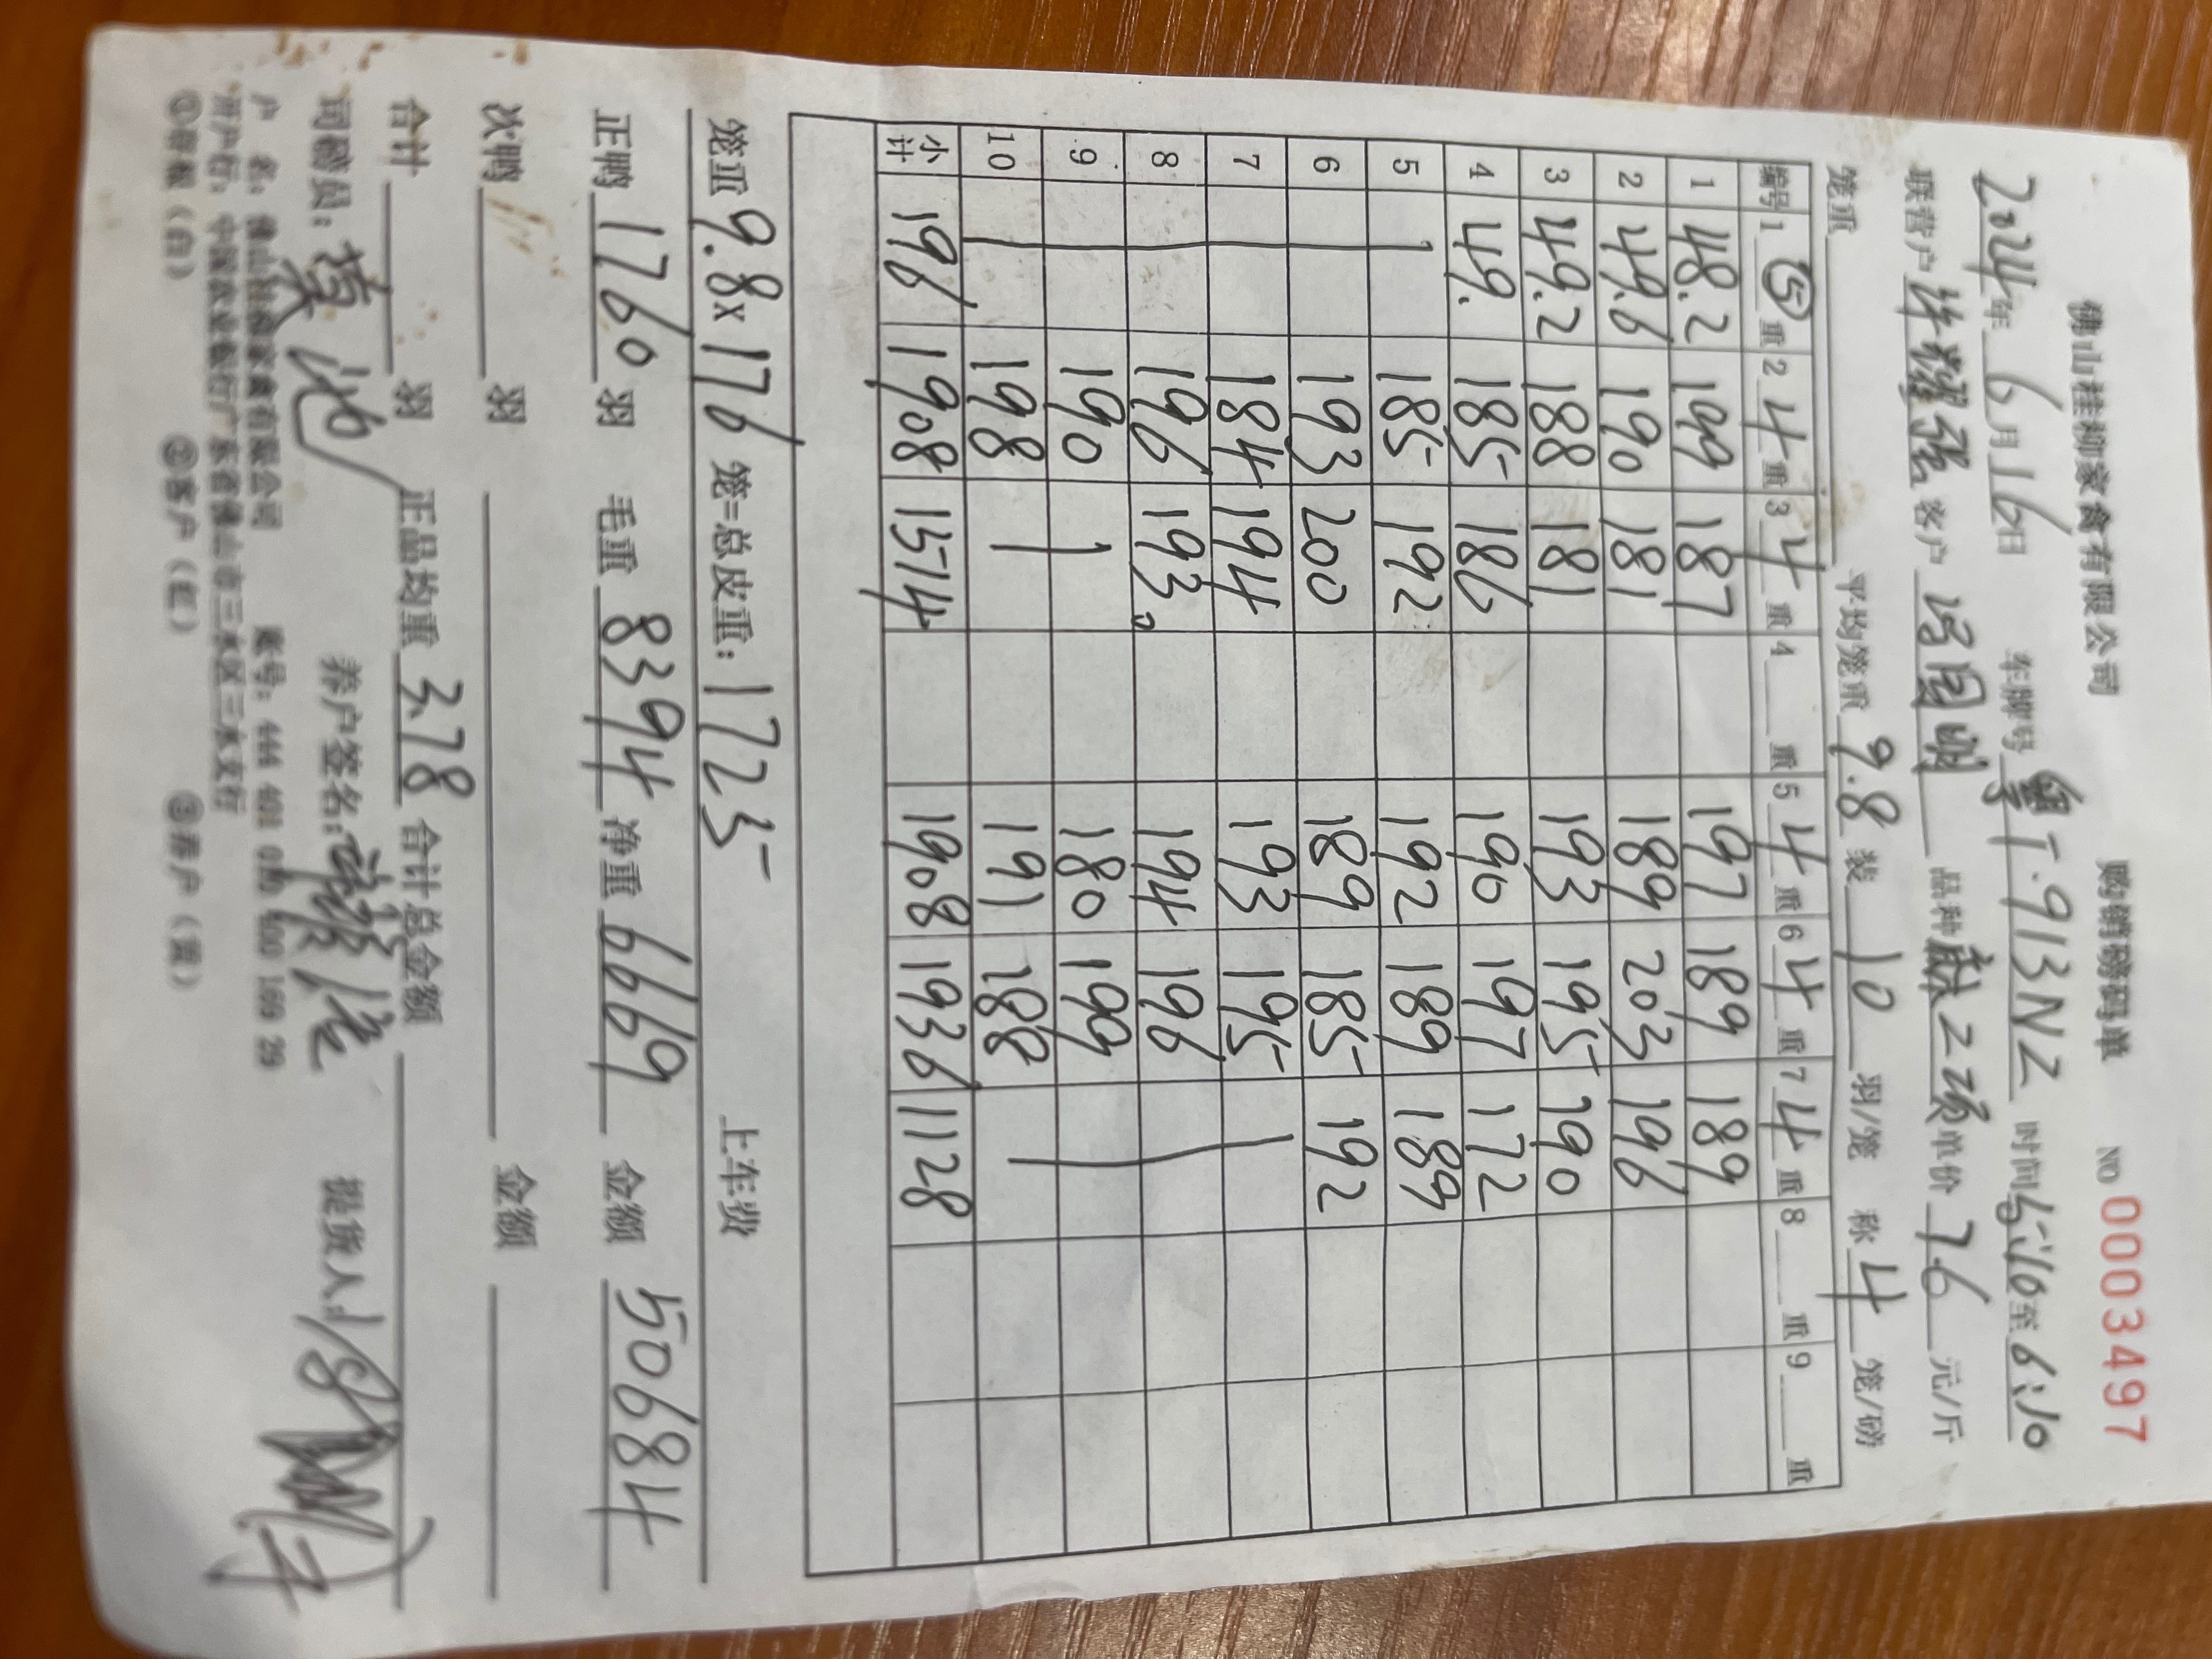 佛山桂柳家禽有限公司 购销磅码单 NO 0003497
2024年 6月16日 车牌号 粤T·913NZ 时间 5:10至 6:10
联营户 客户 冯国明 品种 单价 7.6 元/斤
笼重 平均笼重 9.8 装 10 羽/笼 称 4 笼/磅
编号 1 ⑤ 重 2 4 重 3 4 重 4 重 5 4 重 6 4 重 7 4 重 8 重 9 重
1 48.2 199 187 197 189 189
2 49.6 190 181 189 203 196
3 49.2 188 181 193 195 190
4 49. 185 186 190 197 172
5 185 192 192 189 189
6 193 200 189 185 192
7 184 194 193 195
8 196 193 194 196
9 190 180 199
10 198 191 188
小计 196 1908 1514 1908 1936 1128
笼重 9.8x176 笼=总皮重: 1725 上车费
正鸭 1760 羽 毛重 8394 净重 6669 金额 50684
次鸭 羽 金额
合计 羽 正品均重 3.78 合计总金额
司磅员: 养户签名: 提货人
户 名: 佛山桂柳家禽有限公司 账号:
开户行: 中国农业银行广东省佛山市三水区三水支行
①存根(白) ②客户(红) ③养户(黄)